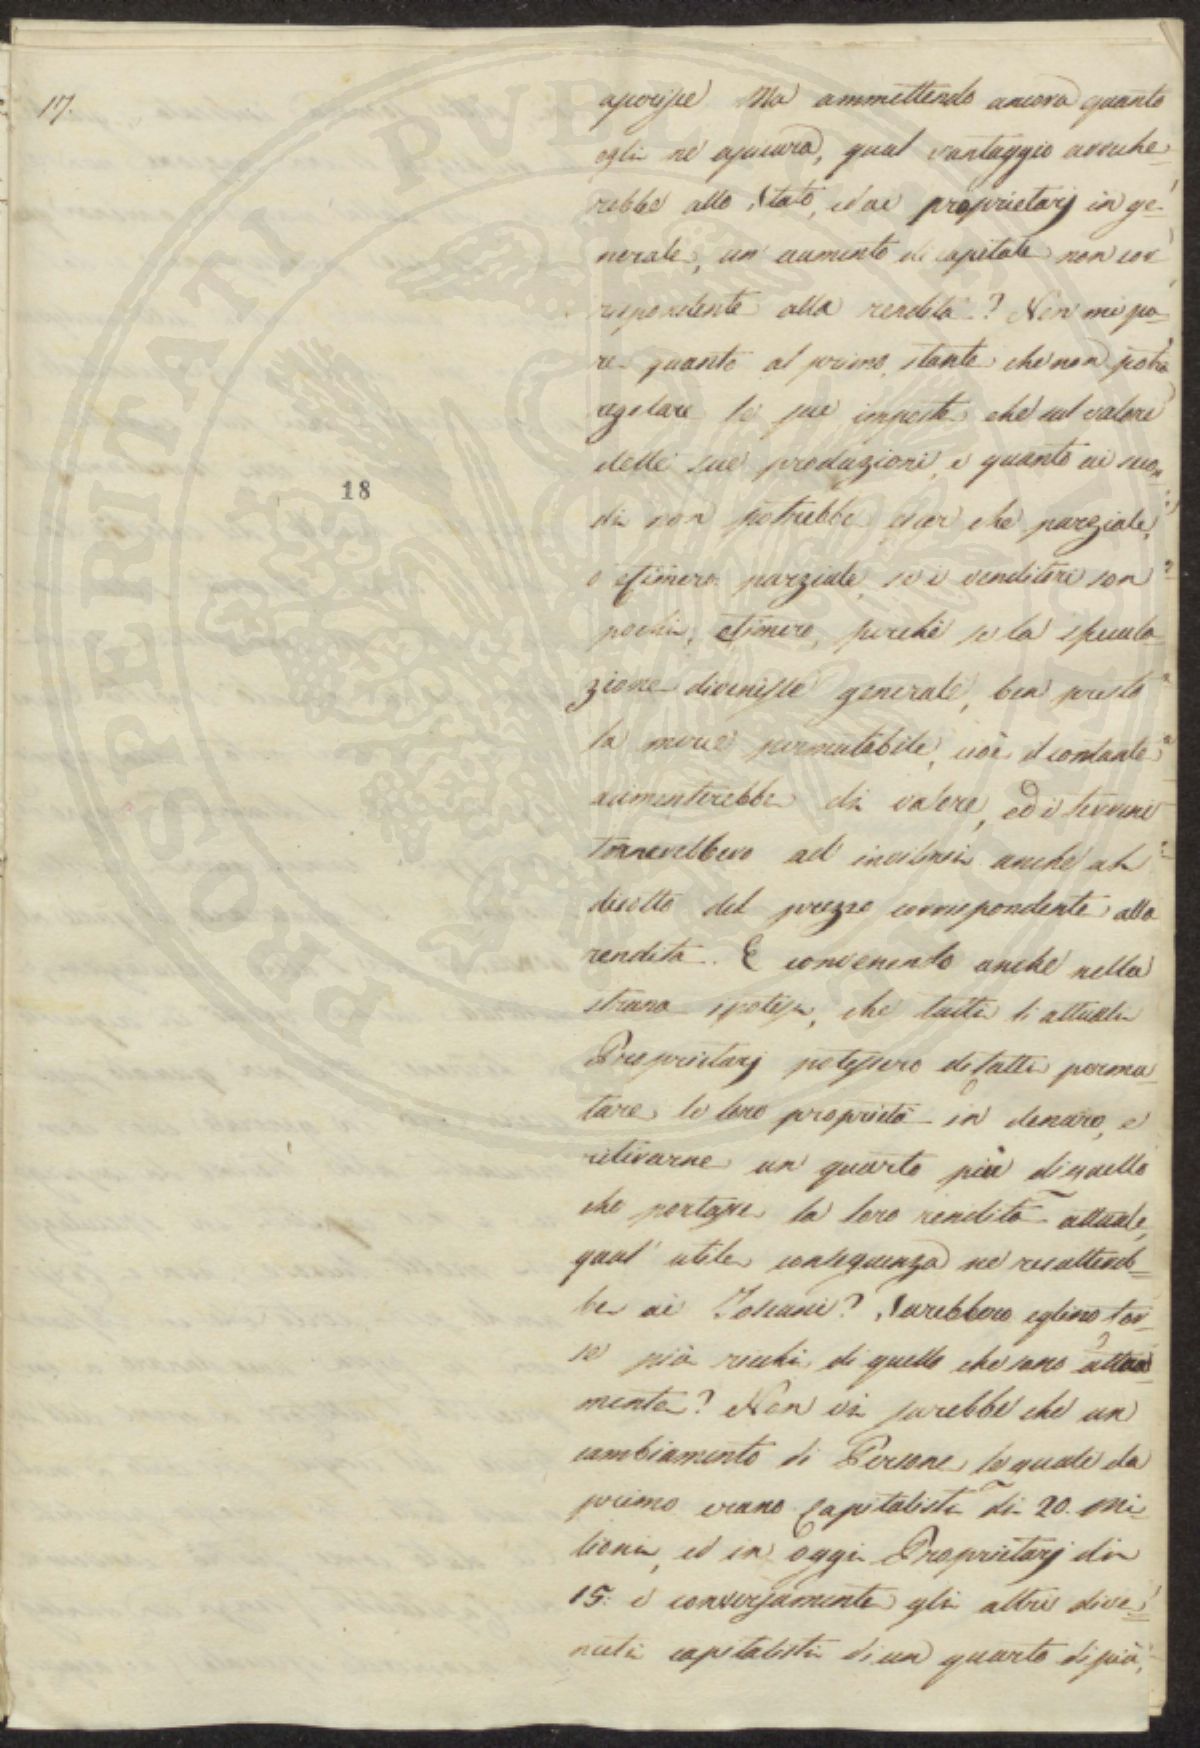 17.
aporisse Ma ammettendo ancora quanto
egli ne assicura, qual vantaggio arreche-
rebbe allo Stato, ed ai proprietarj in ge-
nerale, un' aumento di capitale non cor-
rispondente alla rendita? Non mi pa-
re quanto al primo, stante che non potrà
regolare le sue imposte che sul valore
delle sue produzioni, e quanto ai secon-
di non potrebbe esser che parziale,
o efimero. parziale, se i venditori son
pochi; efimero, perchè se la specula-
zione divenisse generale, ben presto
la merce permutabile, cioè il contante
aumenterebbe di valore, ed i terreni
tornerebbero ad invilirsi anche al
disotto del prezzo corrispondente alla
rendita. E convenendo anche nella
strana ipotesi, che tutti li attuali
Proprietarj potessero difatti permu-
tare le loro proprietà in denaro, e
ritirarne un quarto più di quello
che portasse la loro rendita attuale,
qual' utile conseguenza ne resultereb-
be ai Toscani? Sarebbero eglino for-
se più ricchi di quello che sono attual-
mente? Non vi sarebbe che un
cambiamento di Persone, le quali da
primo erano Capitalisti di 20. mi-
lioni, ed in oggi Proprietarj di
15. e conversamente gli altri dive-
nuti capitalisti di un quarto di più,
18
PROSPERITATI PVBLICAE